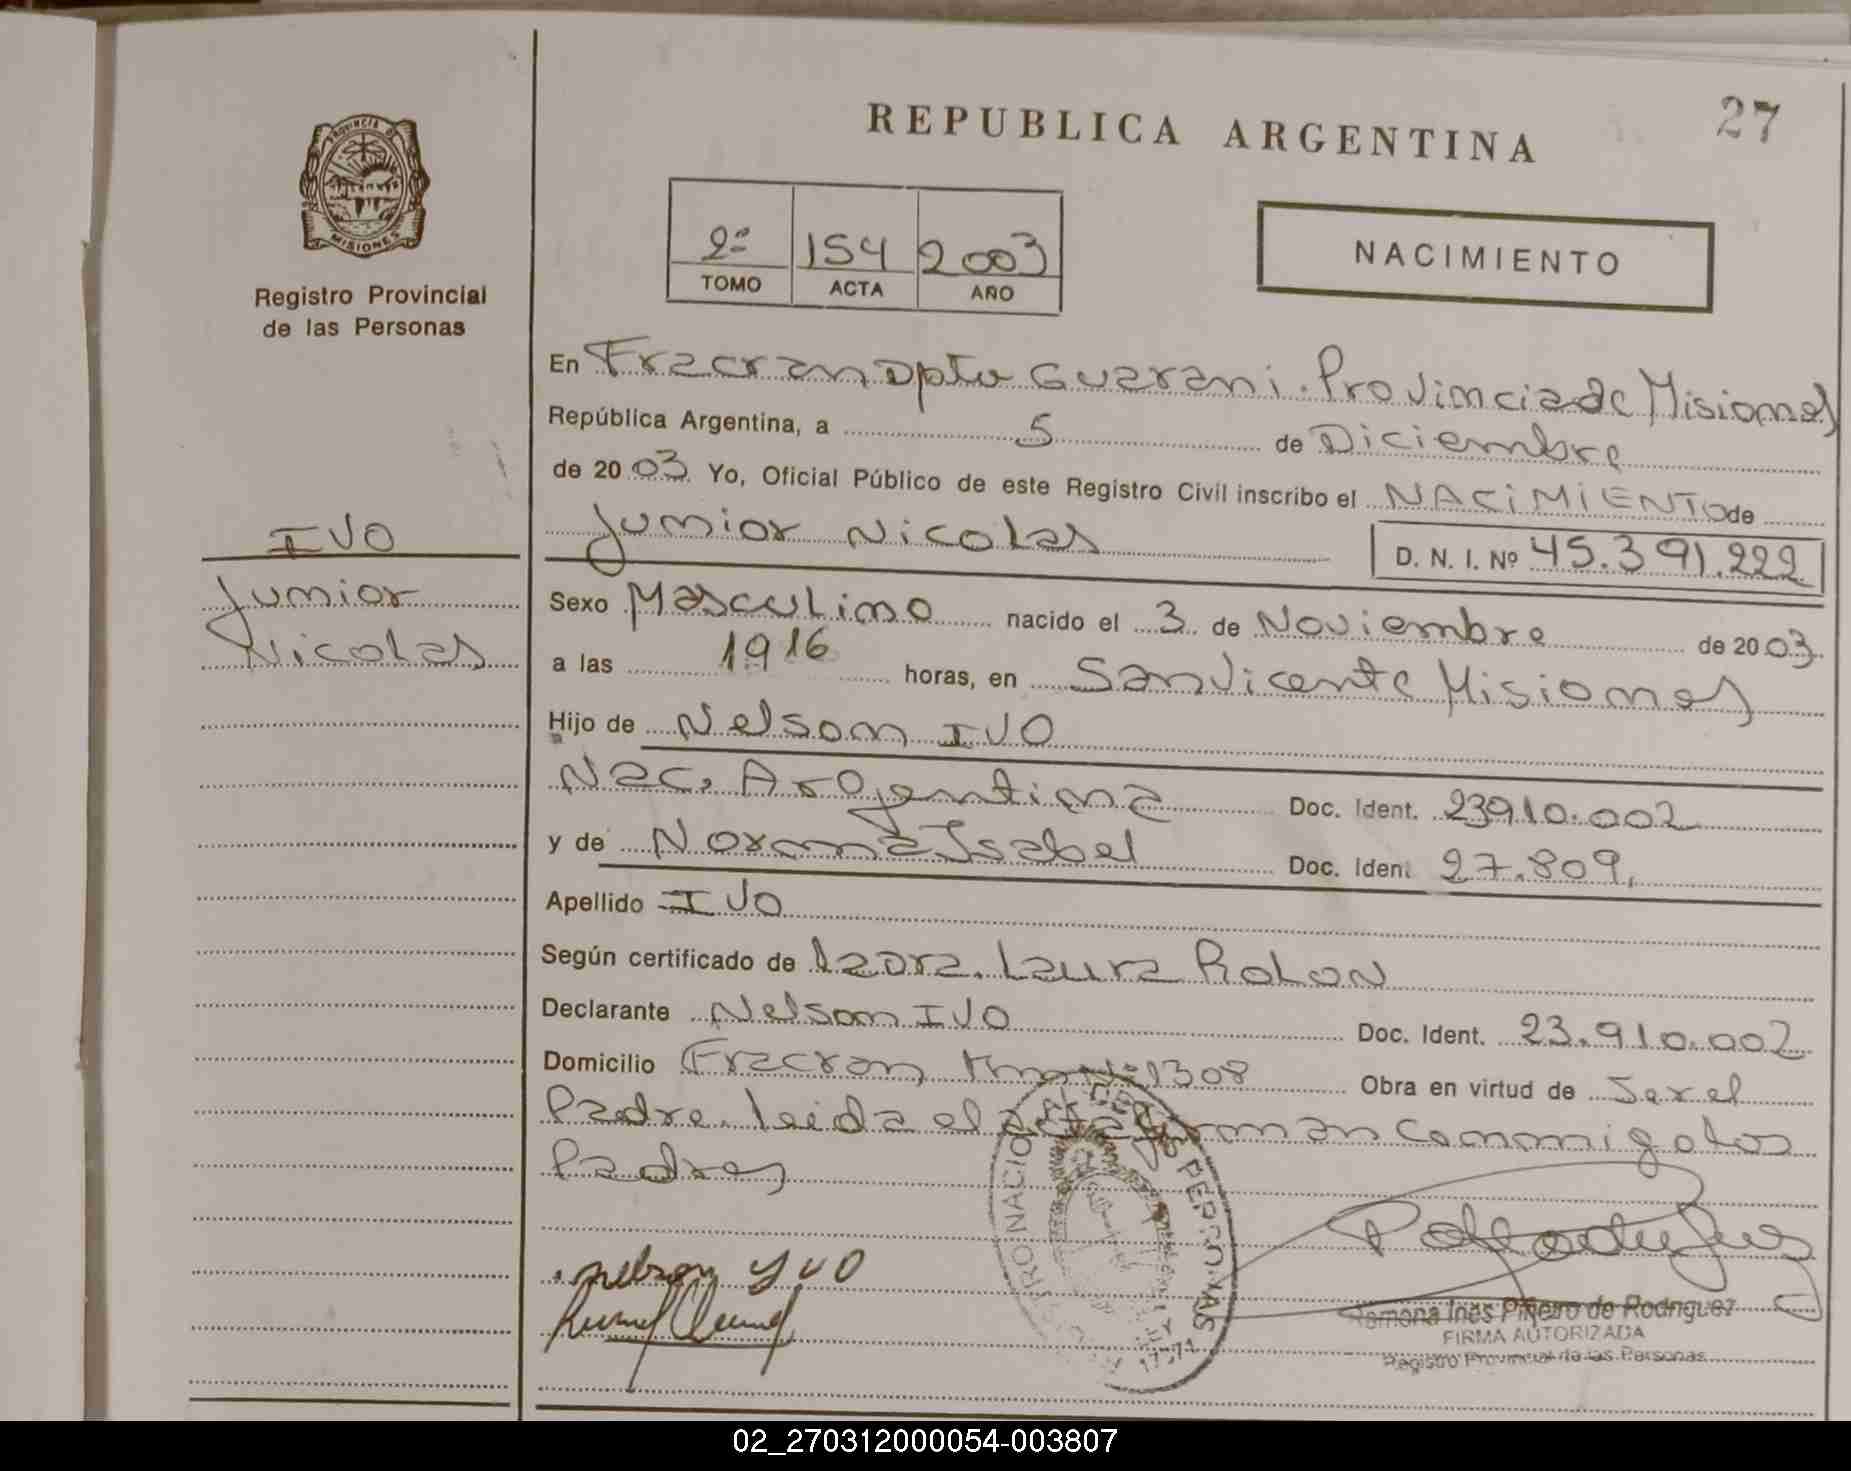 27
REPUBLICA ARGENTINA
PROVINCIA DE
MISIONES
Registro Provincial
de las Personas
2º 154 2003
TOMO ACTA AÑO
NACIMIENTO
En Fracran Dpto Guarani. Provincia de Misiones
República Argentina, a 5 de Diciembre
de 2003 Yo, Oficial Público de este Registro Civil inscribo el NACIMIENTO de
Junior Nicolas D. N. I. Nº 45.391.222
IVO
Junior
Nicolas
Sexo Masculino nacido el 3 de Noviembre de 2003
a las 1916 horas, en San Vicente Misiones
Hijo de Nelson IVO
Nac. Argentina Doc. Ident. 23910.002
y de Norma Isabel Doc. Ident 27.809,
Apellido IVO
Según certificado de Laura Rolon
Declarante Nelson IVO Doc. Ident. 23.910.002
Domicilio Fracran Km Nº 1308 Obra en virtud de Ser el
Padre. leida el acta firman conmigo los
Padres
nelson yvo
Ramona Ines Piñeiro de Rodriguez
FIRMA AUTORIZADA
Registro Provincial de las Personas
02_270312000054-003807